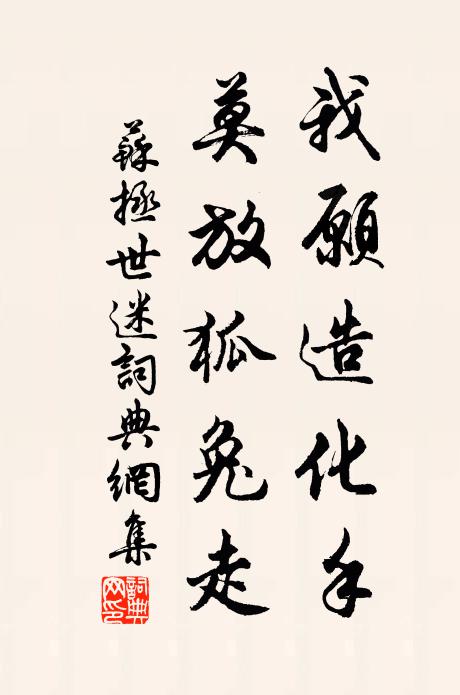 我願造化手
莫放狐兔走
蘇拯世迷詞典網集
詞典網印